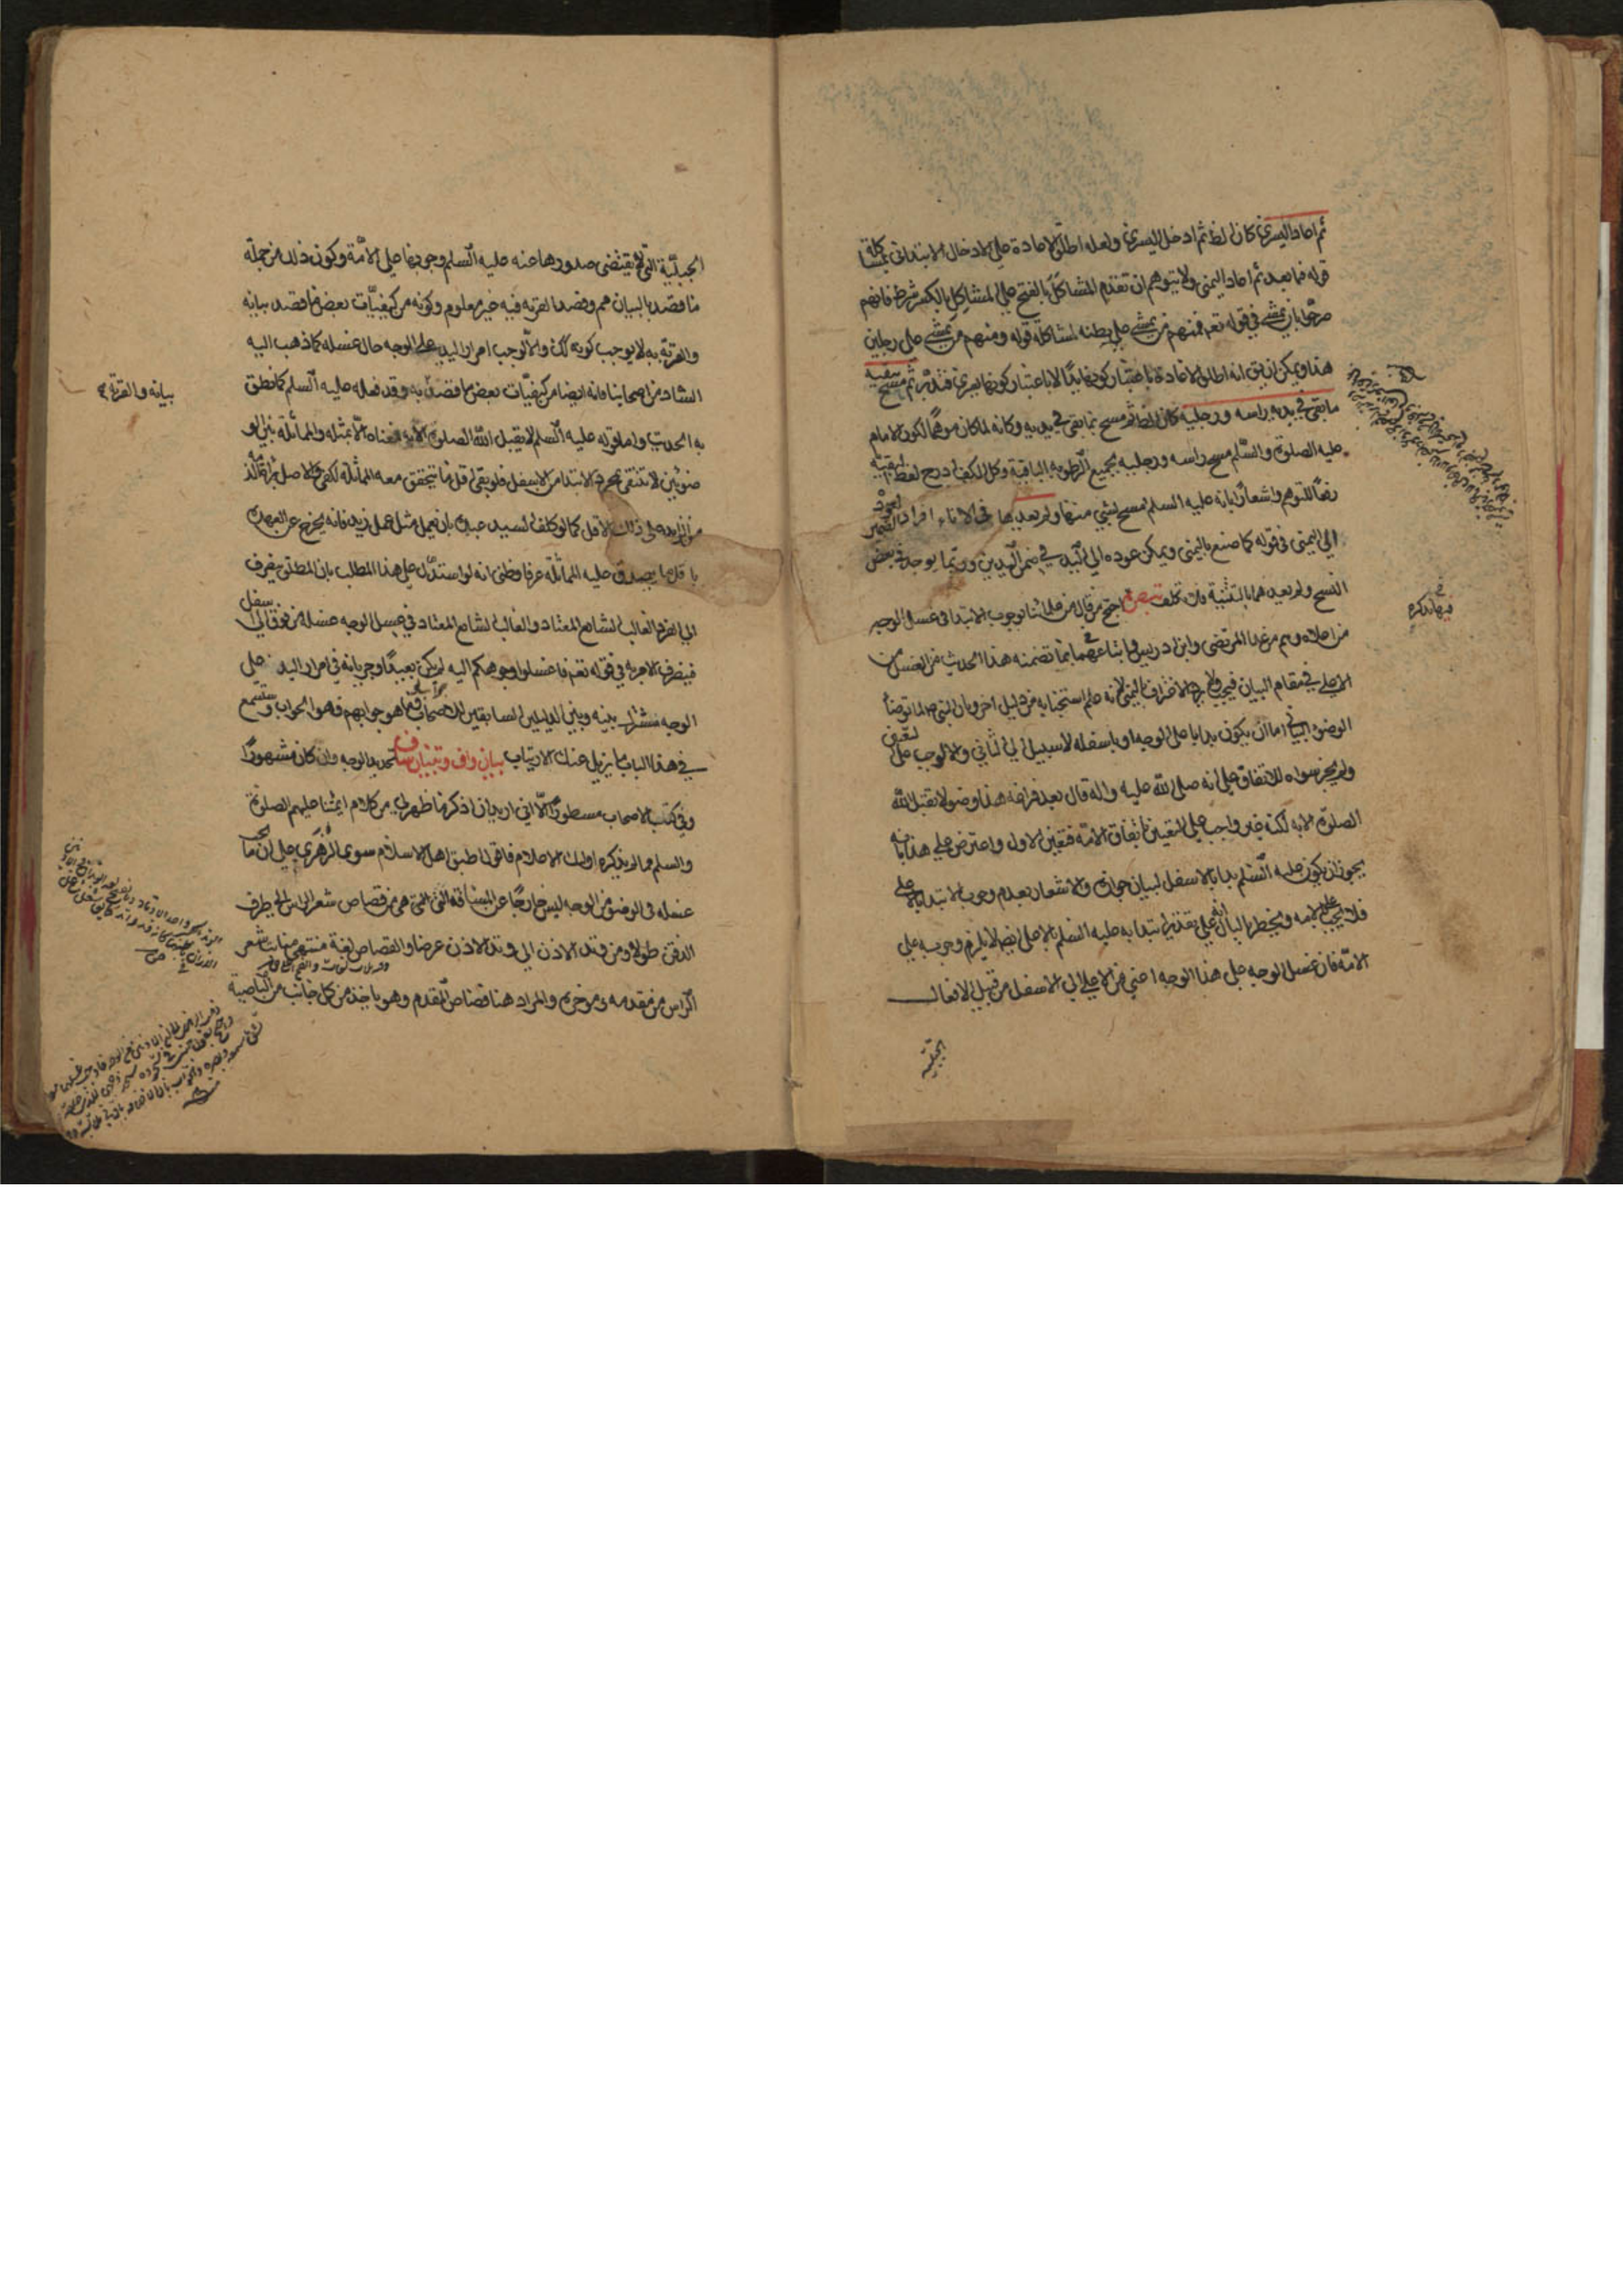 ثم اعاد اليسرى كان الظ ثم ادخل اليسرى ولعله اطلق الاعادة على الادخال الابتدائى لمشاكلة
قوله فيما بعد ثم اعاد اليمنى ولا يتوهم ان تقدم المشاكَل بالفتح على المشاكِل بالكسر شرط فانهم
صرحوا بان يمشى فى قوله تعم فمنهم من يمشى على بطنه لمشاكلة قوله ومنهم من يمشى على رجلين
هذا ويمكن ان يق انه اطلق الاعادة باعتبار كونها يدا لا باعتبار كونها يسرى فتدبر ثم مسح ببقية
ما بقى فى يديه راسه ورجليه كان الظ ثم مسح بما بقى فى يديه وكانه لما كان موهما لكون الامام
عليه الصلوة والسلم مسح راسه ورجليه بجميع الرطوبة الباقية وكل الكف ادرج لفظ البقية
رفعا للتوهم واشعارا بانه عليه السلم مسح بشئ منها ولم يعدها فى الاناء افراد الضمير لعوده
الى اليمنى فى قوله كما صنع باليمنى ويمكن عوده الى اليد فى ضمن اليدين وربما يوجد فى بعض
النسخ ولم يعيدهما بالتثنية وفيه تكلف تبصرة احتج من قال من علمائنا بوجوب الابتدا فى غسل الوجه
من اعلاه وهم من عدا المرتضى وابن ادريس واتباعهما بما تضمنه هذا الحديث من الغسل من
الاعلى فى مقام البيان فيجب ولا يرد الاغتراف باليمنى لانه علم استحبابه من دليل اخر وبان النبى ص لما توضأ
الوضوء البيانى اما ان يكون بدا باعلى الوجه او باسفله لا سبيل الى الثانى والا لوجب على التعيين
ولم يجز سواه للاتفاق على انه صلى الله عليه واله قال بعد فراغه هذا وضوء لا يقبل الله
الصلوة الا به لكنه غير واجب على التعيين باتفاق الامة فتعين الاول واعترض على هذا بانه
يجوز ان يكون عليه السلم بدا بالاسفل لبيان جوازه والاشعار بعدم وجوب الابتدا بالاعلى
فلا يجب علم لامه ويخطر بالبال انه على تقدير ابتدائه عليه السلم بالاعلى ايضا لا يلزم وجوبه على
الامة فان غسل الوجه على هذا الوجه اعنى من الاعلى الى الاسفل من قبيل الافعال
الجبلية
فيما نذكره
الجبلية التى لم يقتضى صدورها عنه عليه السلم وجوبها على الامة وكون ذلك من جملة
ما قصد بالبيان مم وقصد القربة فيه غير معلوم وكونه من كيفيات بعض ما قصد بيانه
والقربة به لا يوجب كونه كك والا لوجب امرار اليد على الوجه حال غسله كما ذهب اليه
الشاذ من اصحابنا فانه ايضا من كيفيات بعض ما قصد به وقد فعله عليه السلم كما نطق
به الحديث واما قوله عليه السلم لا يقبل الله الصلوة الا به فمعناه الا بمثله والمماثلة بين الو
ضوئين لا تنتفى بمجرد الابتدا من الاسفل فلو بقى اقل ما يتحقق معه المماثلة لكفى والاصل براءة الذمة
من الزايد على ذلك الاقل كما لو كلف السيد عبده بان يعمل مثل عمل زيد فانه يخرج عن العهدة
باقل ما يصدق عليه المماثلة عرفا وظنى انه لو استدل على هذا المطلب بان المطلق يصرف
الى الفرد الغالب الشايع المعتاد والغالب الشايع المعتاد فى غسل الوجه غسله من فوق الى اسفل
فينصرف الامر به فى قوله تعم فاغسلوا وجوهكم اليه لم يكن بعيدا وجريانه فى امرار اليد على
الوجه مشترك بينه وبين الدليلين السابقين للاصحاب فما هو جوابهم فهو الجواب وستسمع
فى هذا الباب ما يزيل عنك الارتياب بيان واف وتبيان شاف تحديد الوجه وان كان مشهورا
وفى كتب الاصحاب مسطورا الا انى اريد ان اذكر ما ظهر لى من كلام ائمتنا عليهم الصلوة
والسلم وما لم يذكره اولئك الاعلام فاقول اطبق اهل الاسلام سوى الزهرى على ان ما يجب
غسله فى الوضوء من الوجه ليس خارجا عن المسافة التى هى من قصاص شعر الراس الى طرف
الذقن طولا ومن وتد الاذن الى وتد الاذن عرضا والقصاص لغة منتهى منابت شعر
الراس من مقدمه ومؤخره والمراد هنا قصاص المقدم وهو ياخذ من كل جانب من الناصية
بيانه والقربة